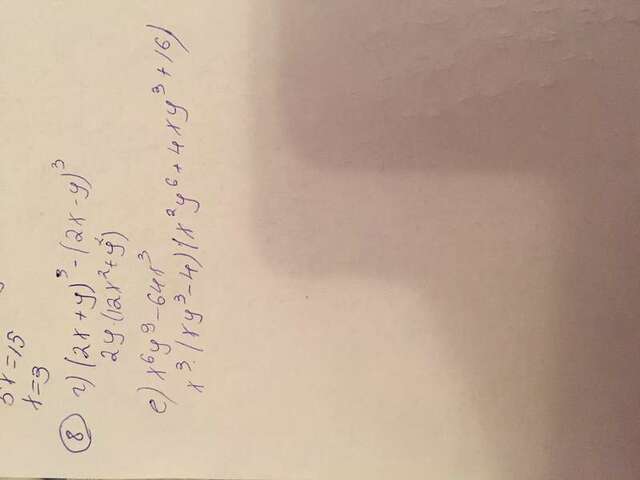 5x=15
x=3
⑧ г) (2x+y)³-(2x-y)³
2y·(12x²+y²)
е) x⁶y⁹-64x³
x³·(xy³-4)(x²y⁶+4xy³+16)